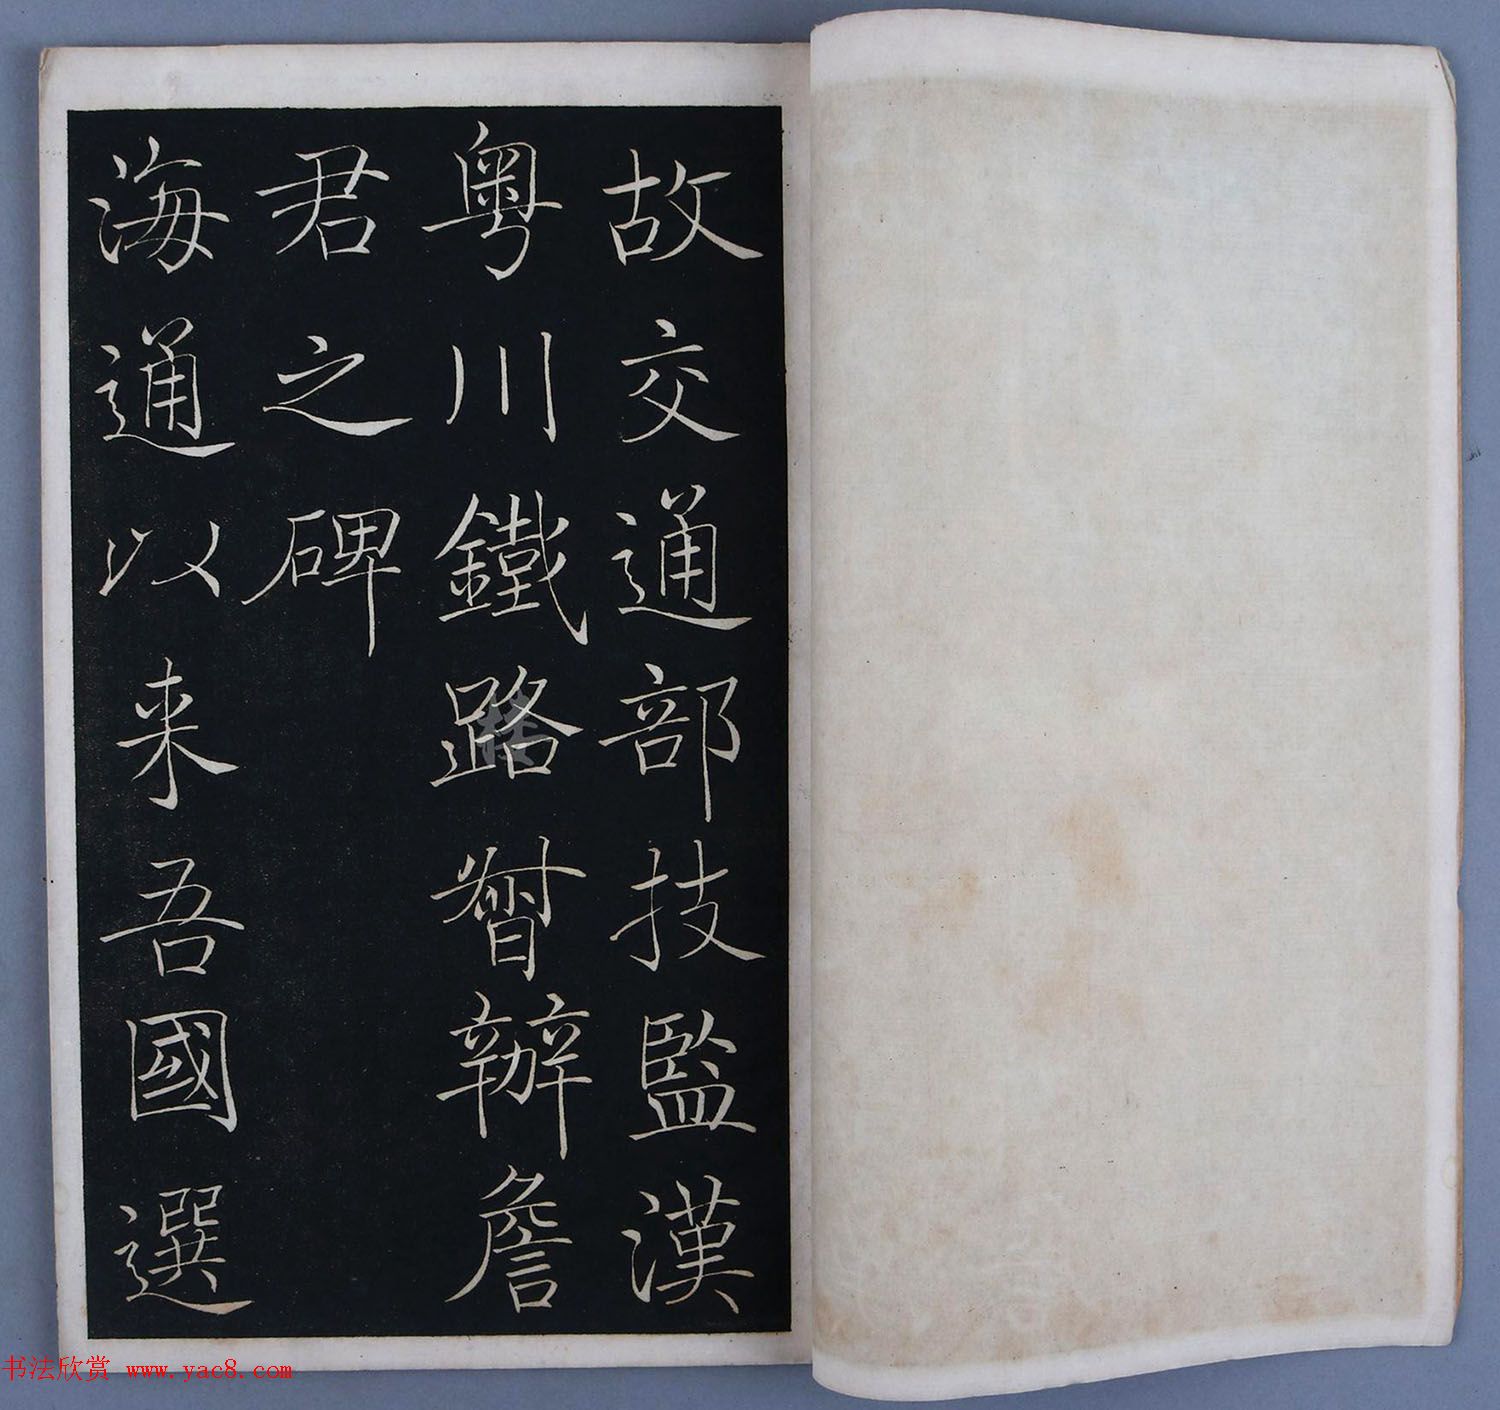 故交通部技監漢
粵川鐵路督辦詹
君之碑
海通以来吾國選
书法欣赏 www.yac8.com